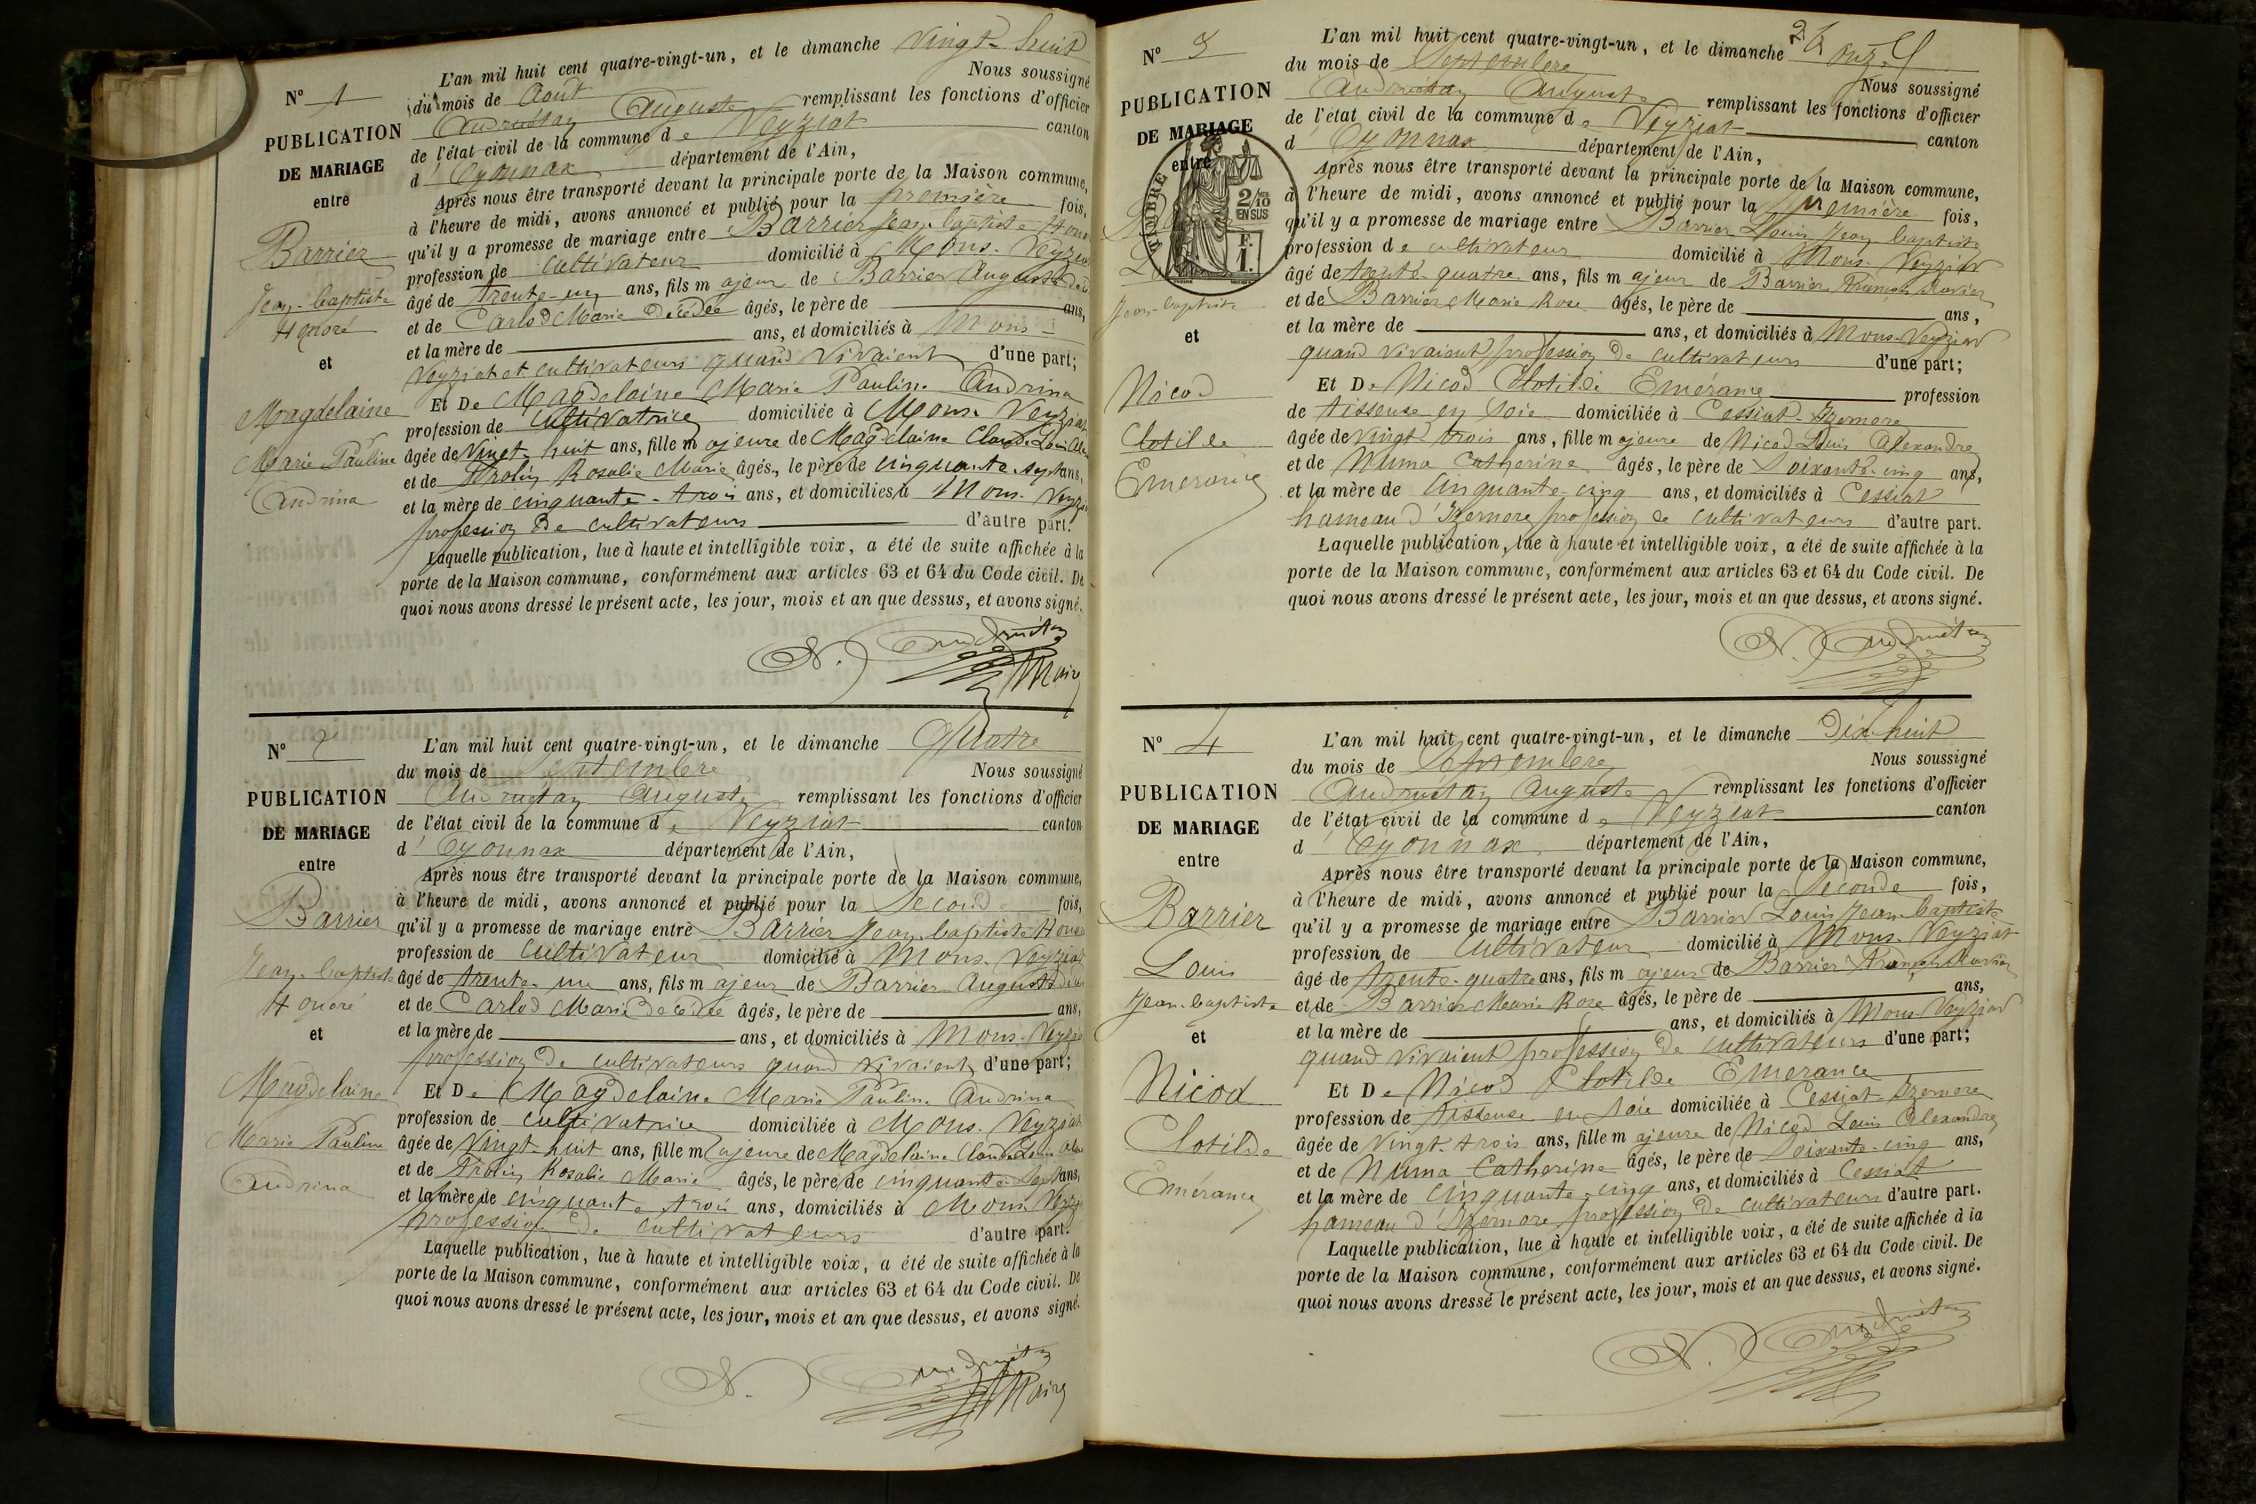 N° 1
PUBLICATION
DE MARIAGE
entre
Barrier
Jean-baptiste
Honoré
et
Magdelaine
Marie Pauline
Andrina
L'an mil huit cent quatre-vingt-un, et le dimanche Vingt-huit
du mois de Août Nous soussigné
Andruétan Auguste remplissant les fonctions d'officier
de l'état civil de la commune de Veyziat canton
d'Oyonnax département de l'Ain,
Après nous être transporté devant la principale porte de la Maison commune,
à l'heure de midi, avons annoncé et publié pour la première fois,
qu'il y a promesse de mariage entre Barrier Jean-baptiste Hono
profession de cultivateur domicilié à Mons-Veyziat
âgé de trente-un ans, fils majeur de Barrier Auguste
et de Carlod Marie Décédée âgés, le père de ans,
et la mère de ans, et domiciliés à Mons-
Veyziat et cultivateurs quand vivaient d'une part;
Et De Magdelaine Marie Pauline Andrina
profession de Cultivatrice domiciliée à Mons-Veyziat
âgée de vingt-huit ans, fille majeure de Magdelaine Claude Louis
et de Rosalie Marie âgés, le père de cinquante-sept ans,
et la mère de cinquante-trois ans, et domiciliés à Mons-Veyzi
profession de cultivateurs d'autre part.
Laquelle publication, lue à haute et intelligible voix, a été de suite affichée à la
porte de la Maison commune, conformément aux articles 63 et 64 du Code civil. De
quoi nous avons dressé le présent acte, les jour, mois et an que dessus, et avons signé.
N. Andruétan
Maire
N° 2
PUBLICATION
DE MARIAGE
entre
Barrier
Jean-baptiste
Honoré
et
Magdelaine
Marie Pauline
Andrina
L'an mil huit cent quatre-vingt-un, et le dimanche Quatre
du mois de Septembre Nous soussigné
Andruétan Auguste remplissant les fonctions d'officier
de l'état civil de la commune de Veyziat canton
d'Oyonnax département de l'Ain,
Après nous être transporté devant la principale porte de la Maison commune,
à l'heure de midi, avons annoncé et publié pour la Second fois,
qu'il y a promesse de mariage entre Barrier Jean-baptiste Hono
profession de Cultivateur domicilié à Mons-Veyziat
âgé de trente-un ans, fils majeur de Barrier Auguste
et de Carlod Marie Décédée âgés, le père de ans,
et la mère de ans, et domiciliés à Mons-Veyzia
profession de cultivateurs quand vivaient d'une part;
Et De Magdelaine Marie Pauline Andrina
profession de cultivatrice domiciliée à Mons-Veyziat
âgée de vingt-huit ans, fille majeure de Magdelaine Claude Louis
et de Rosalie Marie âgés, le père de cinquante-sept ans,
et la mère de cinquante trois ans, domiciliés à Mons Veyzi
profession de cultivateurs d'autre part.
Laquelle publication, lue à haute et intelligible voix, a été de suite affichée à la
porte de la Maison commune, conformément aux articles 63 et 64 du Code civil. De
quoi nous avons dressé le présent acte, les jour, mois et an que dessus, et avons signé.
N. Andruétan
Maire
N° 3
PUBLICATION
DE MARIAGE
entre
TIMBRE
2/10
EN SUS
F.
1.
Jean-baptiste
et
Nicod
Clotilde
Emérance
L'an mil huit cent quatre-vingt-un, et le dimanche onze
du mois de Septembre Nous soussigné
Andruétan Auguste remplissant les fonctions d'officier
de l'état civil de la commune de Veyziat canton
d'Oyonnax département de l'Ain,
Après nous être transporté devant la principale porte de la Maison commune,
à l'heure de midi, avons annoncé et publié pour la première fois,
qu'il y a promesse de mariage entre Barrier Louis Jean baptiste
profession de cultivateur domicilié à Mons-Veyziat
âgé de trente-quatre ans, fils majeur de Barrier François Xavier
et de Barrier Marie Rose âgés, le père de ans,
et la mère de ans, et domiciliés à Mons-Veyziat
quand vivaient profession de cultivateurs d'une part;
Et De Nicod Clotilde Emérance profession
de tisseuse en soie domiciliée à Cessiat-Izernore
âgée de vingt trois ans, fille majeure de Nicod Louis Alexandre
et de Numa Catherine âgés, le père de Soixante-cinq ans,
et la mère de Cinquante-cinq ans, et domiciliés à Cessiat
hameau d'Izernore profession de cultivateurs d'autre part.
Laquelle publication, lue à haute et intelligible voix, a été de suite affichée à la
porte de la Maison commune, conformément aux articles 63 et 64 du Code civil. De
quoi nous avons dressé le présent acte, les jour, mois et an que dessus, et avons signé.
N. Andruétan
N° 4
PUBLICATION
DE MARIAGE
entre
Barrier
Louis
Jean-baptiste
et
Nicod
Clotilde
Emérance
L'an mil huit cent quatre-vingt-un, et le dimanche Dix-huit
du mois de Septembre Nous soussigné
Andruétan Auguste remplissant les fonctions d'officier
de l'état civil de la commune de Veyziat canton
d'Oyonnax département de l'Ain,
Après nous être transporté devant la principale porte de la Maison commune,
à l'heure de midi, avons annoncé et publié pour la Seconde fois,
qu'il y a promesse de mariage entre Barrier Louis Jean-baptiste
profession de Cultivateur domicilié à Mons-Veyziat
âgé de trente-quatre ans, fils majeur de Barrier François Xavier
et de Barrier Marie Rose âgés, le père de ans,
et la mère de ans, et domiciliés à Mons-Veyziat
quand vivaient profession de cultivateurs d'une part;
Et De Nicod Clotilde Emérance
profession de tisseuse en soie domiciliée à Cessiat-Izernore
âgée de Vingt-trois ans, fille majeure de Nicod Louis Alexandre
et de Numa Catherine âgés, le père de Soixante-cinq ans,
et la mère de cinquante-cinq ans, et domiciliés à Cessiat
hameau d'Izernore profession de cultivateurs d'autre part.
Laquelle publication, lue à haute et intelligible voix, a été de suite affichée à la
porte de la Maison commune, conformément aux articles 63 et 64 du Code civil. De
quoi nous avons dressé le présent acte, les jour, mois et an que dessus, et avons signé.
N. Andruétan